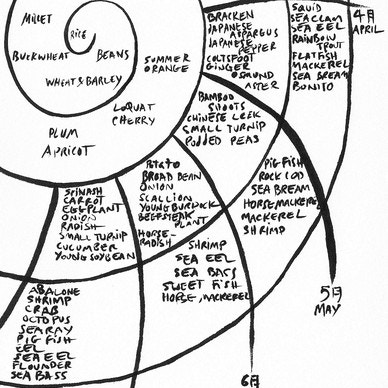 MILLET
RICE
BUCKWHEAT
BEANS
WHEAT & BARLEY
SUMMER
ORANGE
LOQUAT
CHERRY
PLUM
APRICOT
BRACKEN
JAPANESE
ASPARGUS
JAPANESE
PEPPER
COLTSFOOT
GINGER
OSMUND
ASTER
SQUID
SEA CLAM
SEA EEL
RAINBOW
TROUT
FLATFISH
MACKEREL
SEA BREAM
BONITO
4月
APRIL
BAMBOO
SHOOTS
CHINESE LEEK
SMALL TURNIP
PODDED PEAS
PIG FISH
ROCK COD
SEA BREAM
HORSE, MACKEREL
MACKEREL
SHRIMP
5月
MAY
POTATO
BROAD BEAN
ONION
SCALLION
YOUNG BURDOCK
BEEFSTEAK
PLANT
HORSE-
RADISH
SHRIMP
SEA EEL
SEA BASS
SWEET FISH
HORSE, MACKEREL
6月
SPINASH
CARROT
EGGPLANT
ONION
RADISH
SMALL TURNIP
CUCUMBER
YOUNG SOYBEAN
ABALONE
SHRIMP
CRAB
OCTOPUS
SEARAY
PIG FISH
EEL
SEA EEL
FLOUNDER
SEA BASS